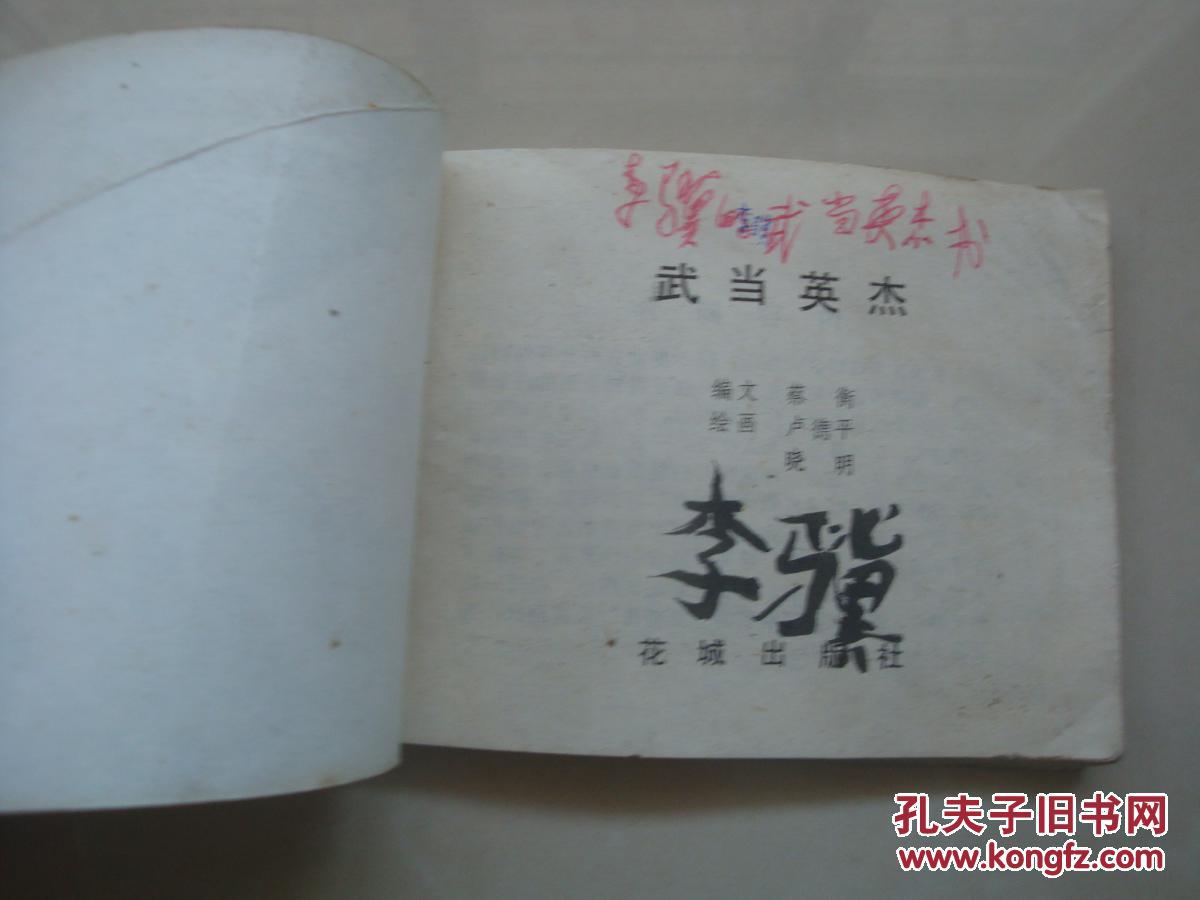 李骥的武当英杰书
武当英杰
编文 蔡衡
绘画 卢德平
晓明
李骥
花城出版社
孔夫子旧书网
www.kongfz.com